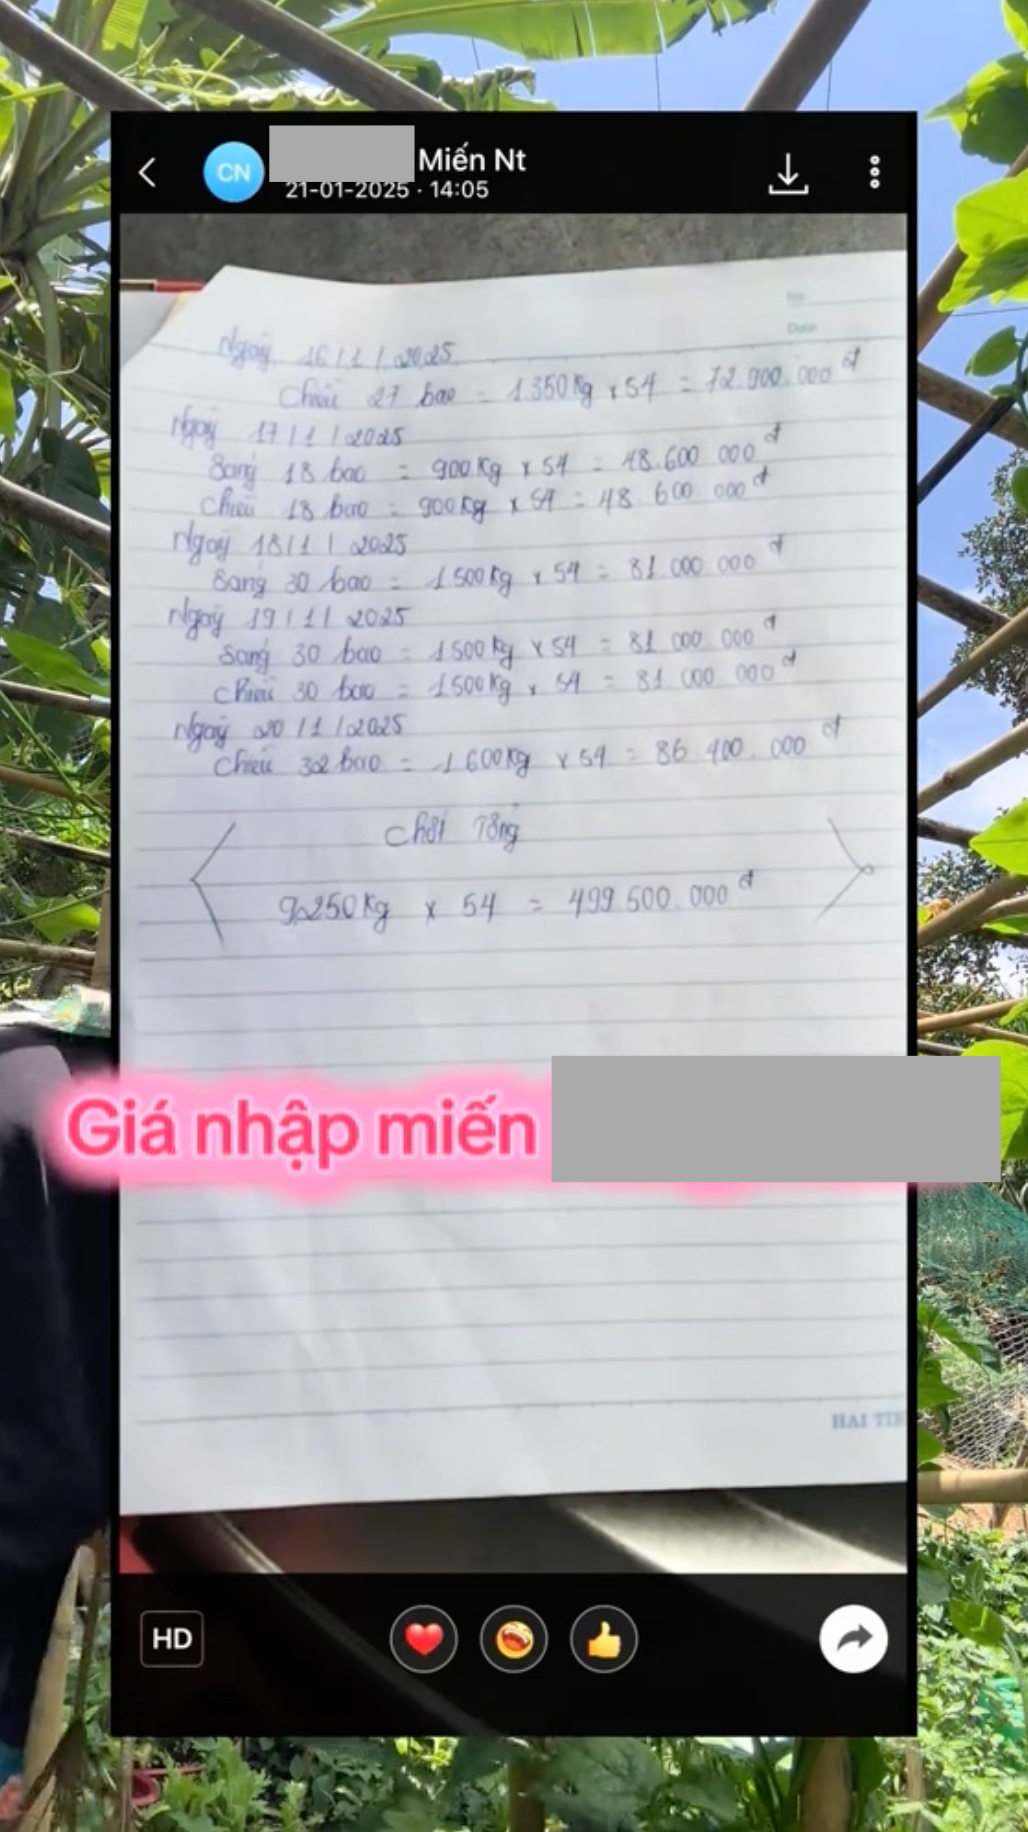 CN
Miến Nt
21-01-2025 · 14:05
No
Date
Ngày 16/1/2025
Chiều 27 bao = 1.350kg x 54 = 72.900.000đ
Ngày 17/1/2025
Sáng 18 bao = 900kg x 54 = 48.600 000đ
Chiều 18 bao = 900kg x 54 = 48.600 000đ
Ngày 18/1/2025
Sáng 30 bao = 1500kg x 54 = 81.000.000đ
Ngày 19/1/2025
Sáng 30 bao = 1500kg x 54 = 81 000.000đ
Chiều 30 bao = 1500kg x 54 = 81 000.000đ
Ngày 20/1/2025
Chiều 32 bao = 1600kg x 54 = 86 400.000đ
Chốt Tổng
9.250kg x 54 = 499.500.000đ
Giá nhập miến
HẢI TIẾ
HD